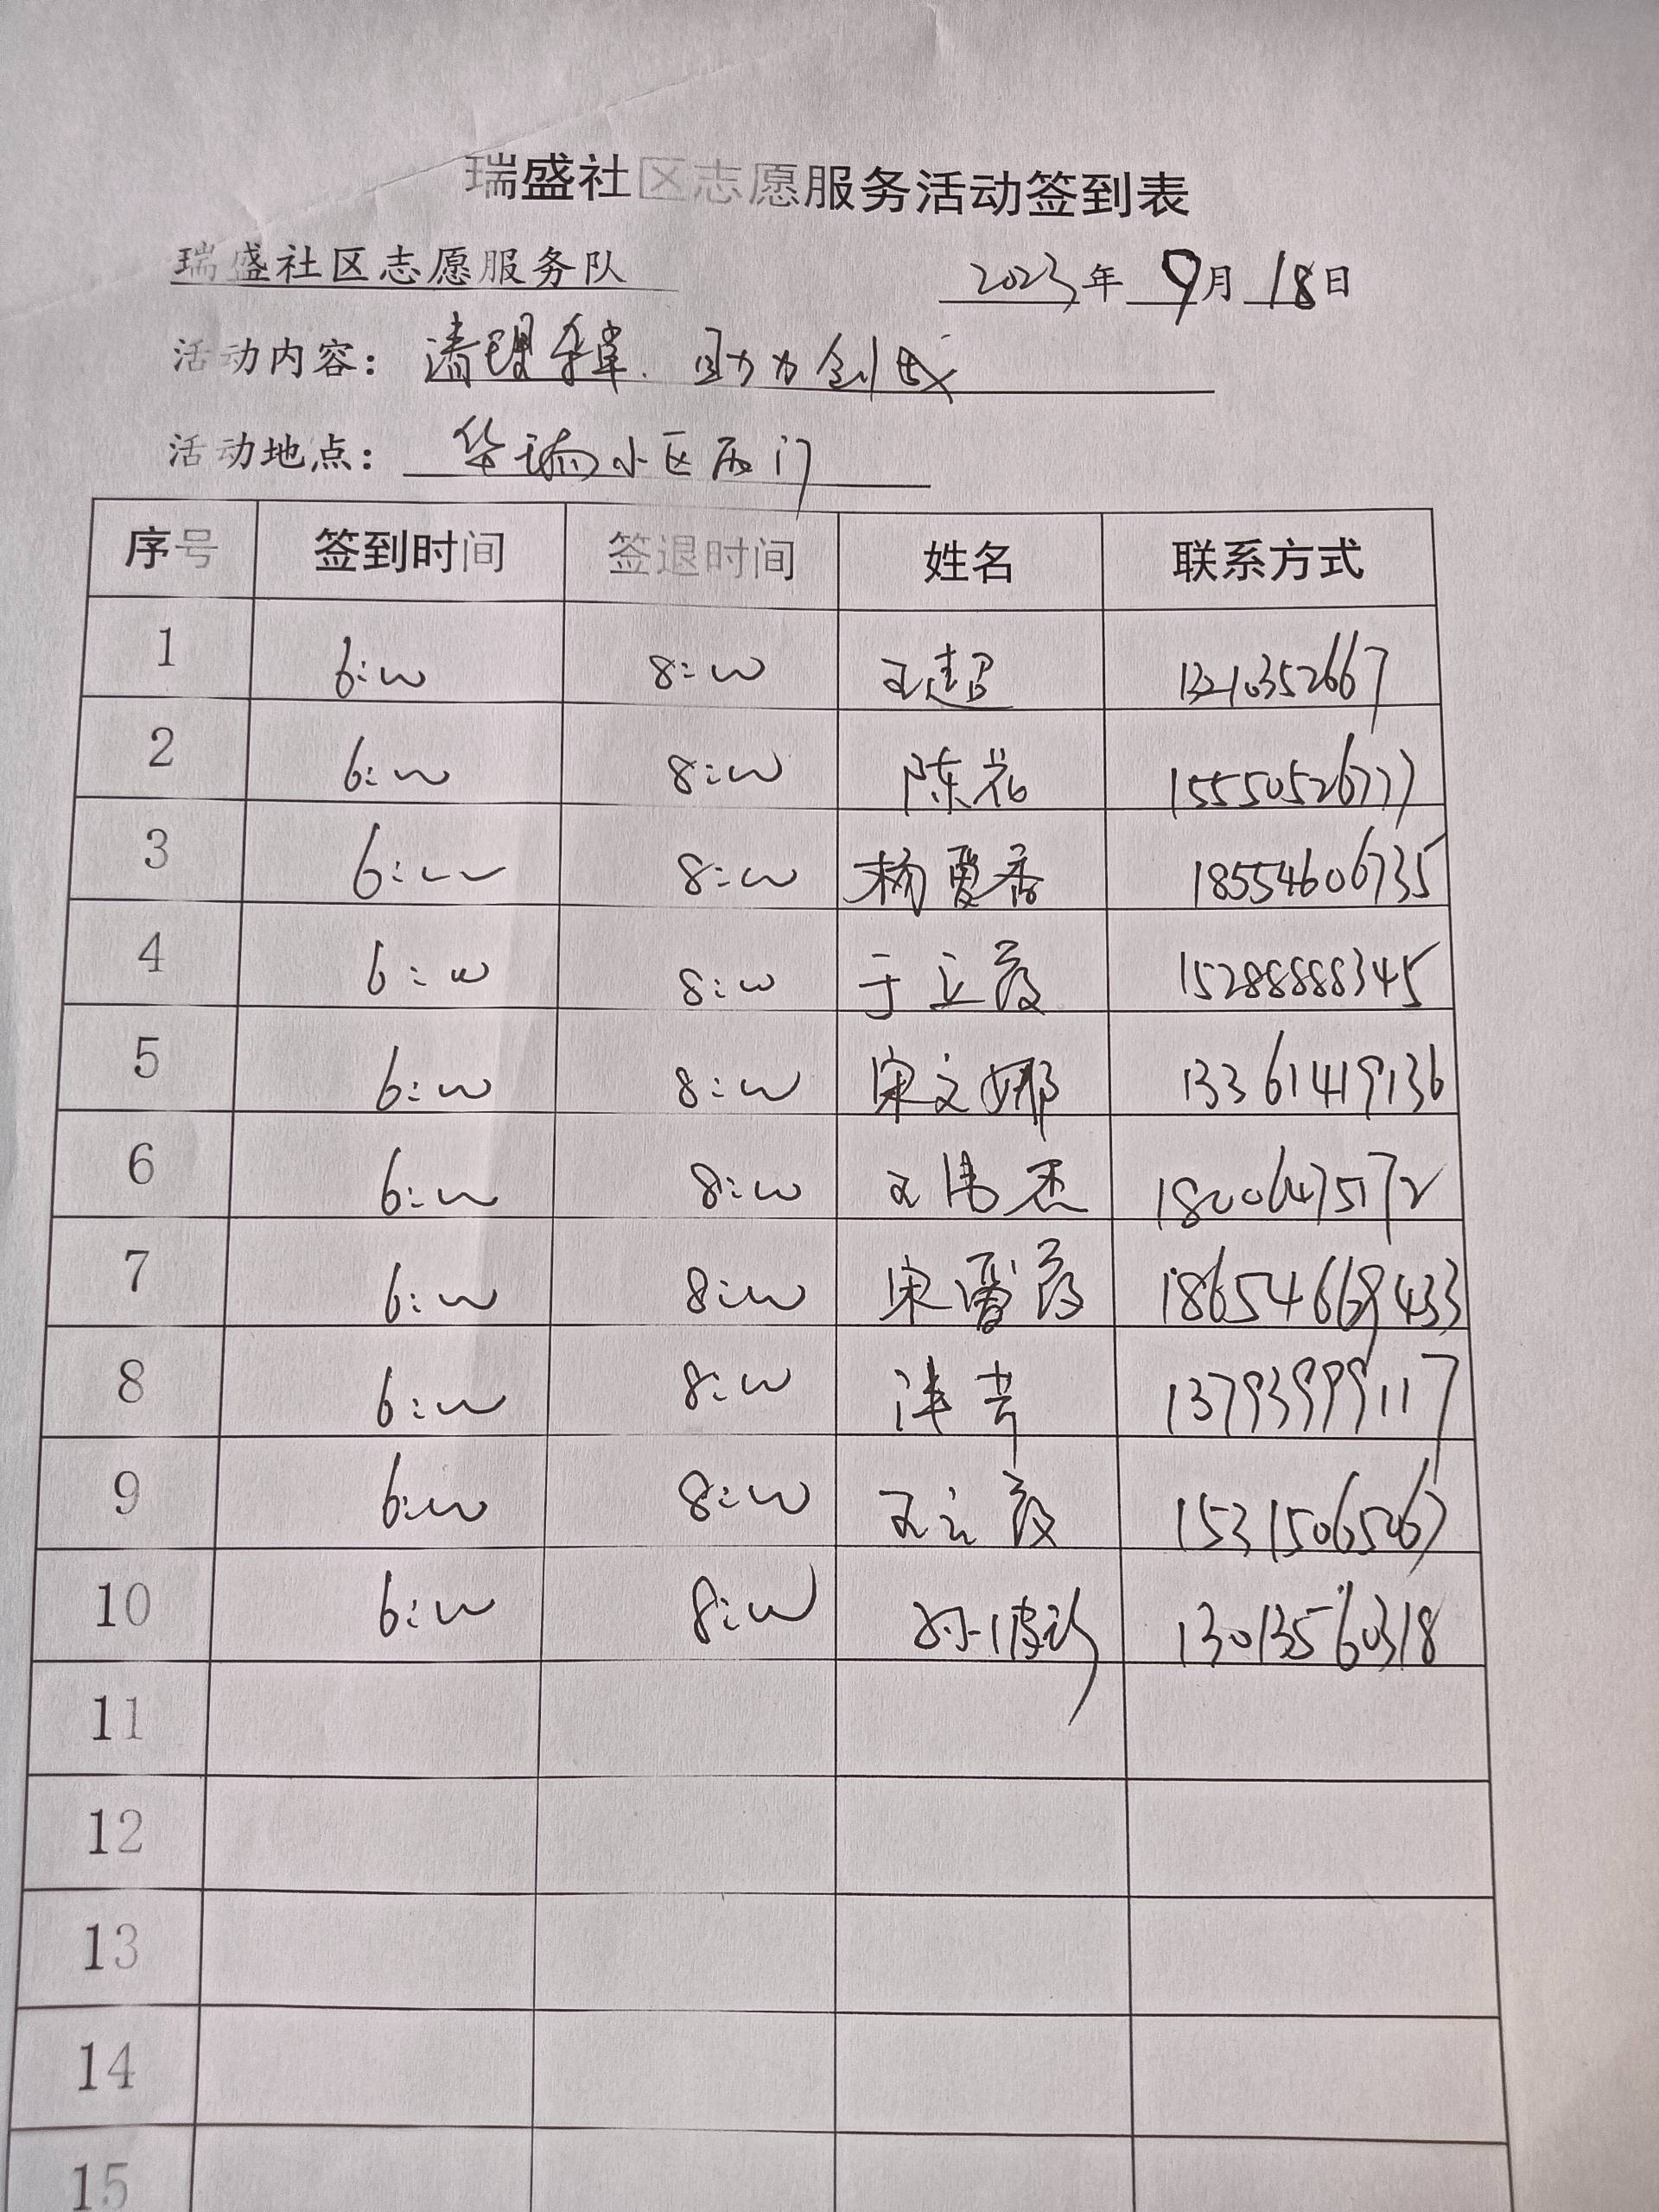 瑞盛社区志愿服务活动签到表
瑞盛社区志愿服务队 2023年 9月 18日
活动内容: 清理杂草. 助力创城
活动地点: 华瑞小区西门
序号 签到时间 签退时间 姓名 联系方式
1 6:00 8:00 王超 13210352667
2 6:00 8:00 陈花 15550526777
3 6:00 8:00 杨爱香 18554606735
4 6:00 8:00 于立霞 15288888345
5 6:00 8:00 宋文娜 13361419136
6 6:00 8:00 王伟杰 18006475172
7 6:00 8:00 宋霞 18654669433
8 6:00 8:00 13793999117
9 6:00 8:00 王立霞 15315065267
10 6:00 8:00 孙 13013560318
11
12
13
14
15